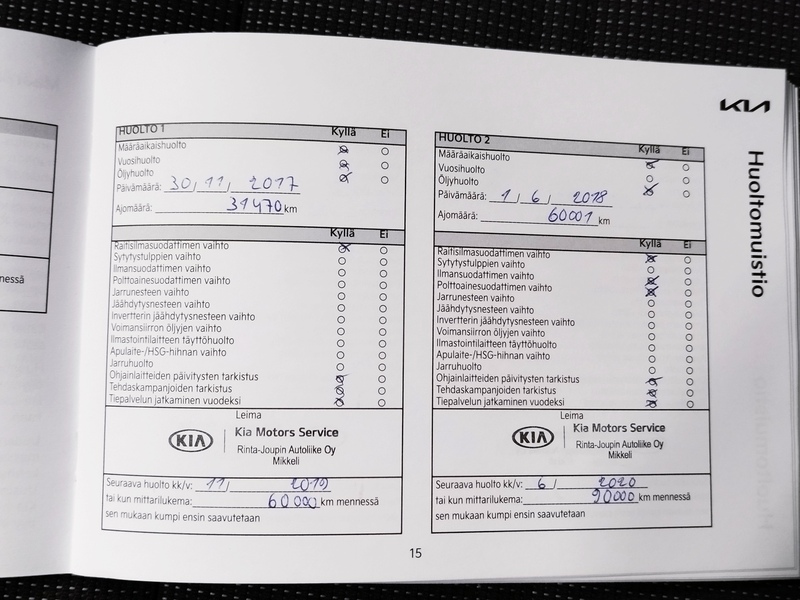 nessä
KIA
Huoltomuistio
HUOLTO 1 Kyllä Ei
Määräaikaishuolto
Vuosihuolto
Öljyhuolto
Päivämäärä: 30/11/2017
Ajomäärä: 31470 km
Kyllä Ei
Raitisilmasuodattimen vaihto
Sytytystulppien vaihto
Ilmansuodattimen vaihto
Polttoainesuodattimen vaihto
Jarrunesteen vaihto
Jäähdytysnesteen vaihto
Invertterin jäähdytysnesteen vaihto
Voimansiirron öljyjen vaihto
Ilmastointilaitteen täyttöhuolto
Apulaite-/HSG-hihnan vaihto
Jarruhuolto
Ohjainlaitteiden päivitysten tarkistus
Tehdaskampanjoiden tarkistus
Tiepalvelun jatkaminen vuodeksi
Leima
KIA Kia Motors Service
Rinta-Joupin Autoliike Oy
Mikkeli
Seuraava huolto kk/v: 11/ 2019
tai kun mittarilukema: 60000 km mennessä
sen mukaan kumpi ensin saavutetaan
HUOLTO 2 Kyllä Ei
Määräaikaishuolto
Vuosihuolto
Öljyhuolto
Päivämäärä: 1/6/2018
Ajomäärä: 60001 km
Kyllä Ei
Raitisilmasuodattimen vaihto
Sytytystulppien vaihto
Ilmansuodattimen vaihto
Polttoainesuodattimen vaihto
Jarrunesteen vaihto
Jäähdytysnesteen vaihto
Invertterin jäähdytysnesteen vaihto
Voimansiirron öljyjen vaihto
Ilmastointilaitteen täyttöhuolto
Apulaite-/HSG-hihnan vaihto
Jarruhuolto
Ohjainlaitteiden päivitysten tarkistus
Tehdaskampanjoiden tarkistus
Tiepalvelun jatkaminen vuodeksi
Leima
KIA Kia Motors Service
Rinta-Joupin Autoliike Oy
Mikkeli
Seuraava huolto kk/v: 6/ 2020
tai kun mittarilukema: 90000 km mennessä
sen mukaan kumpi ensin saavutetaan
15